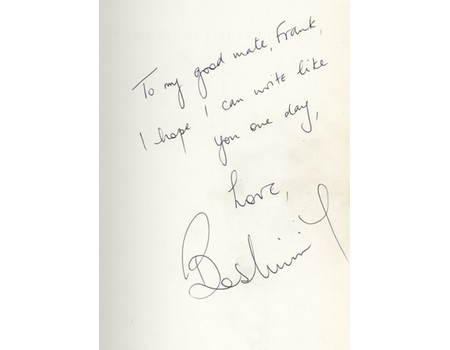 To my good mate, Frank,
I hope I can write like
you one day,
Love,